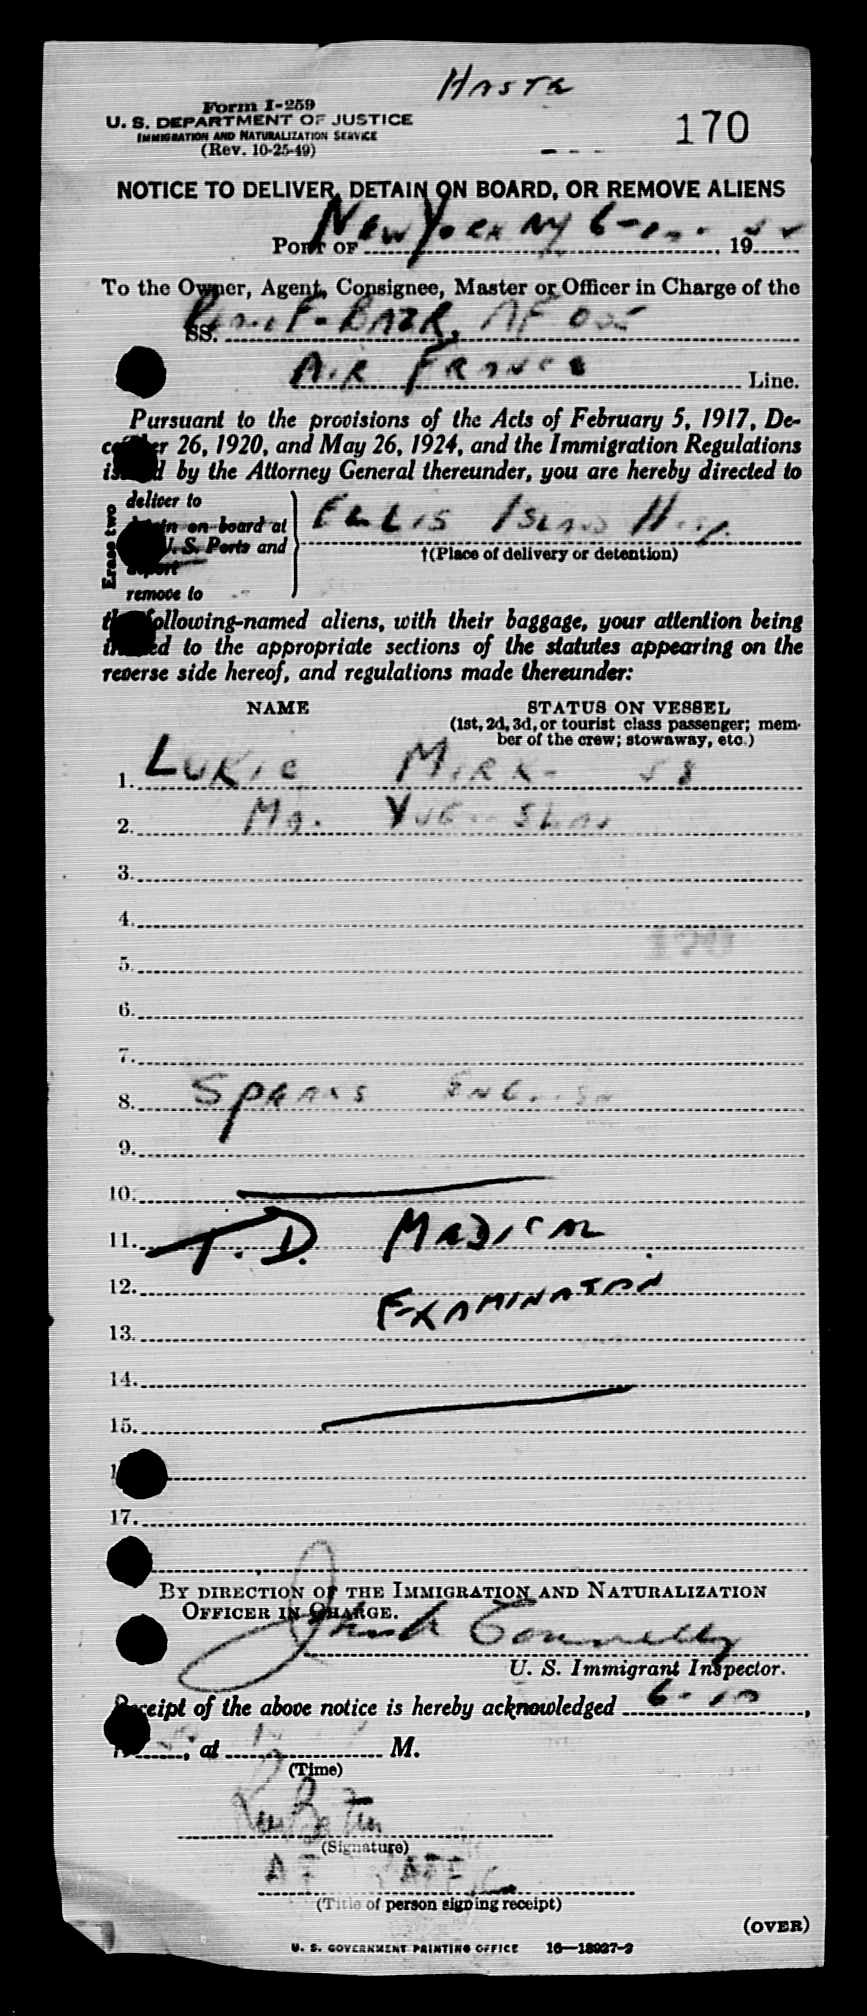 HASTE
Form I-259
U. S. DEPARTMENT OF JUSTICE
IMMIGRATION AND NATURALIZATION SERVICE
(Rev. 10-25-49)
170
NOTICE TO DELIVER, DETAIN ON BOARD, OR REMOVE ALIENS
PORT OF New York NY 6-10- 19
To the Owner, Agent, Consignee, Master or Officer in Charge of the
SS. F-BAZR, AF 005
AIR FRANCE Line.
Pursuant to the provisions of the Acts of February 5, 1917, De-
cember 26, 1920, and May 26, 1924, and the Immigration Regulations
issued by the Attorney General thereunder, you are hereby directed to
Erase two
deliver to
detain on board at
U. S. Ports and
deport
remove to
ELLIS ISLAND Hosp.
†(Place of delivery or detention)
the following-named aliens, with their baggage, your attention being
invited to the appropriate sections of the statutes appearing on the
reverse side hereof, and regulations made thereunder:
NAME
STATUS ON VESSEL
(1st, 2d, 3d, or tourist class passenger; mem-
ber of the crew; stowaway, etc.)
1. LUKIC 58
2. Ma. YUGOSLAV
3.
4.
5.
6.
7.
8. SPEAKS ENGLISH
9.
10.
11. T.D. MEDICAL
12. EXAMINATION
13.
14.
15.
17.
BY DIRECTION OF THE IMMIGRATION AND NATURALIZATION
OFFICER IN CHARGE.
Connelly
U. S. Immigrant Inspector.
Receipt of the above notice is hereby acknowledged 6-10,
19, at M.
(Time)
(Signature)
AF TRAFFIC
(Title of person signing receipt)
(OVER)
U. S. GOVERNMENT PRINTING OFFICE 16—18937-2